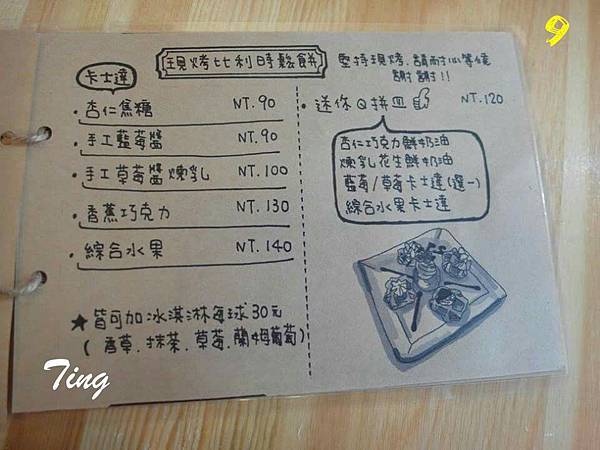 9
現烤比利時鬆餅
堅持現烤.請耐心等候
謝謝!!
卡士達
·杏仁焦糖 NT.90
·手工藍莓醬 NT.90
·手工草莓醬煉乳 NT.100
·香蕉巧克力 NT.130
·綜合水果 NT.140
★皆可加冰淇淋每球30元
(香草.抹茶.草莓.蘭姆葡萄)
·迷你Q拼皿 NT.120
杏仁巧克力鮮奶油
煉乳花生鮮奶油
藍莓/草莓卡士達(選一)
綜合水果卡士達
Ting